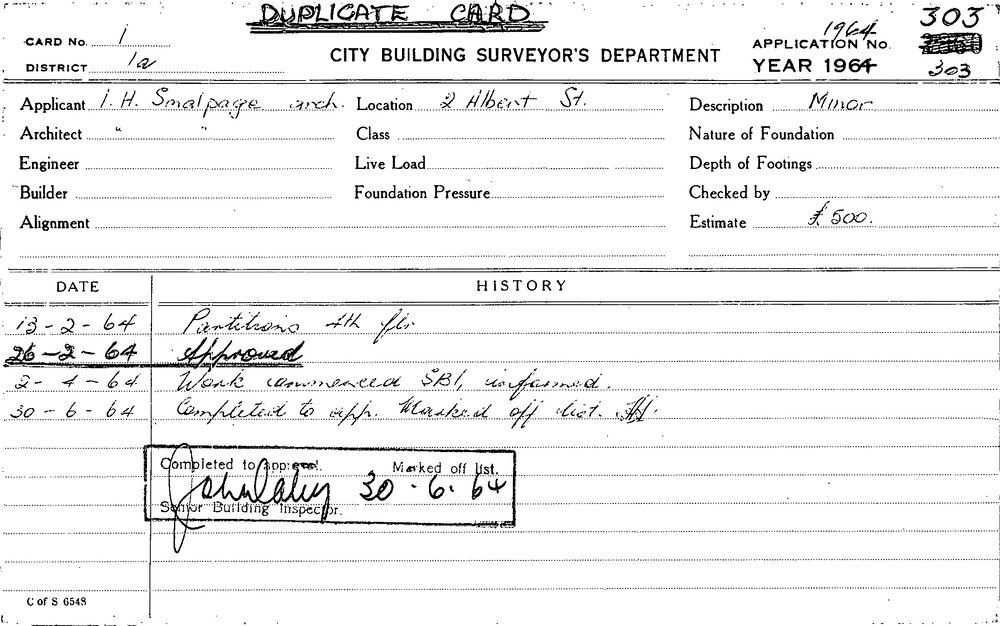 DUPLICATE CARD
303
CARD No. 1
1964
APPLICATION No.
303
DISTRICT 1a
CITY BUILDING SURVEYOR'S DEPARTMENT
YEAR 1964
Applicant I. H. Smalpage arch. Location 2 Albert St. Description Minor
Architect " " Class Nature of Foundation
Engineer Live Load Depth of Footings
Builder Foundation Pressure Checked by
Alignment Estimate £500.
DATE HISTORY
13-2-64 Partitions 4th flr.
26-2-64 Approved
2-4-64 Work commenced SBI, informed.
30-6-64 Completed to app. Marked off list.
Completed to approval. Marked off list.
30.6.64
Senior Building Inspector.
C of S 6548